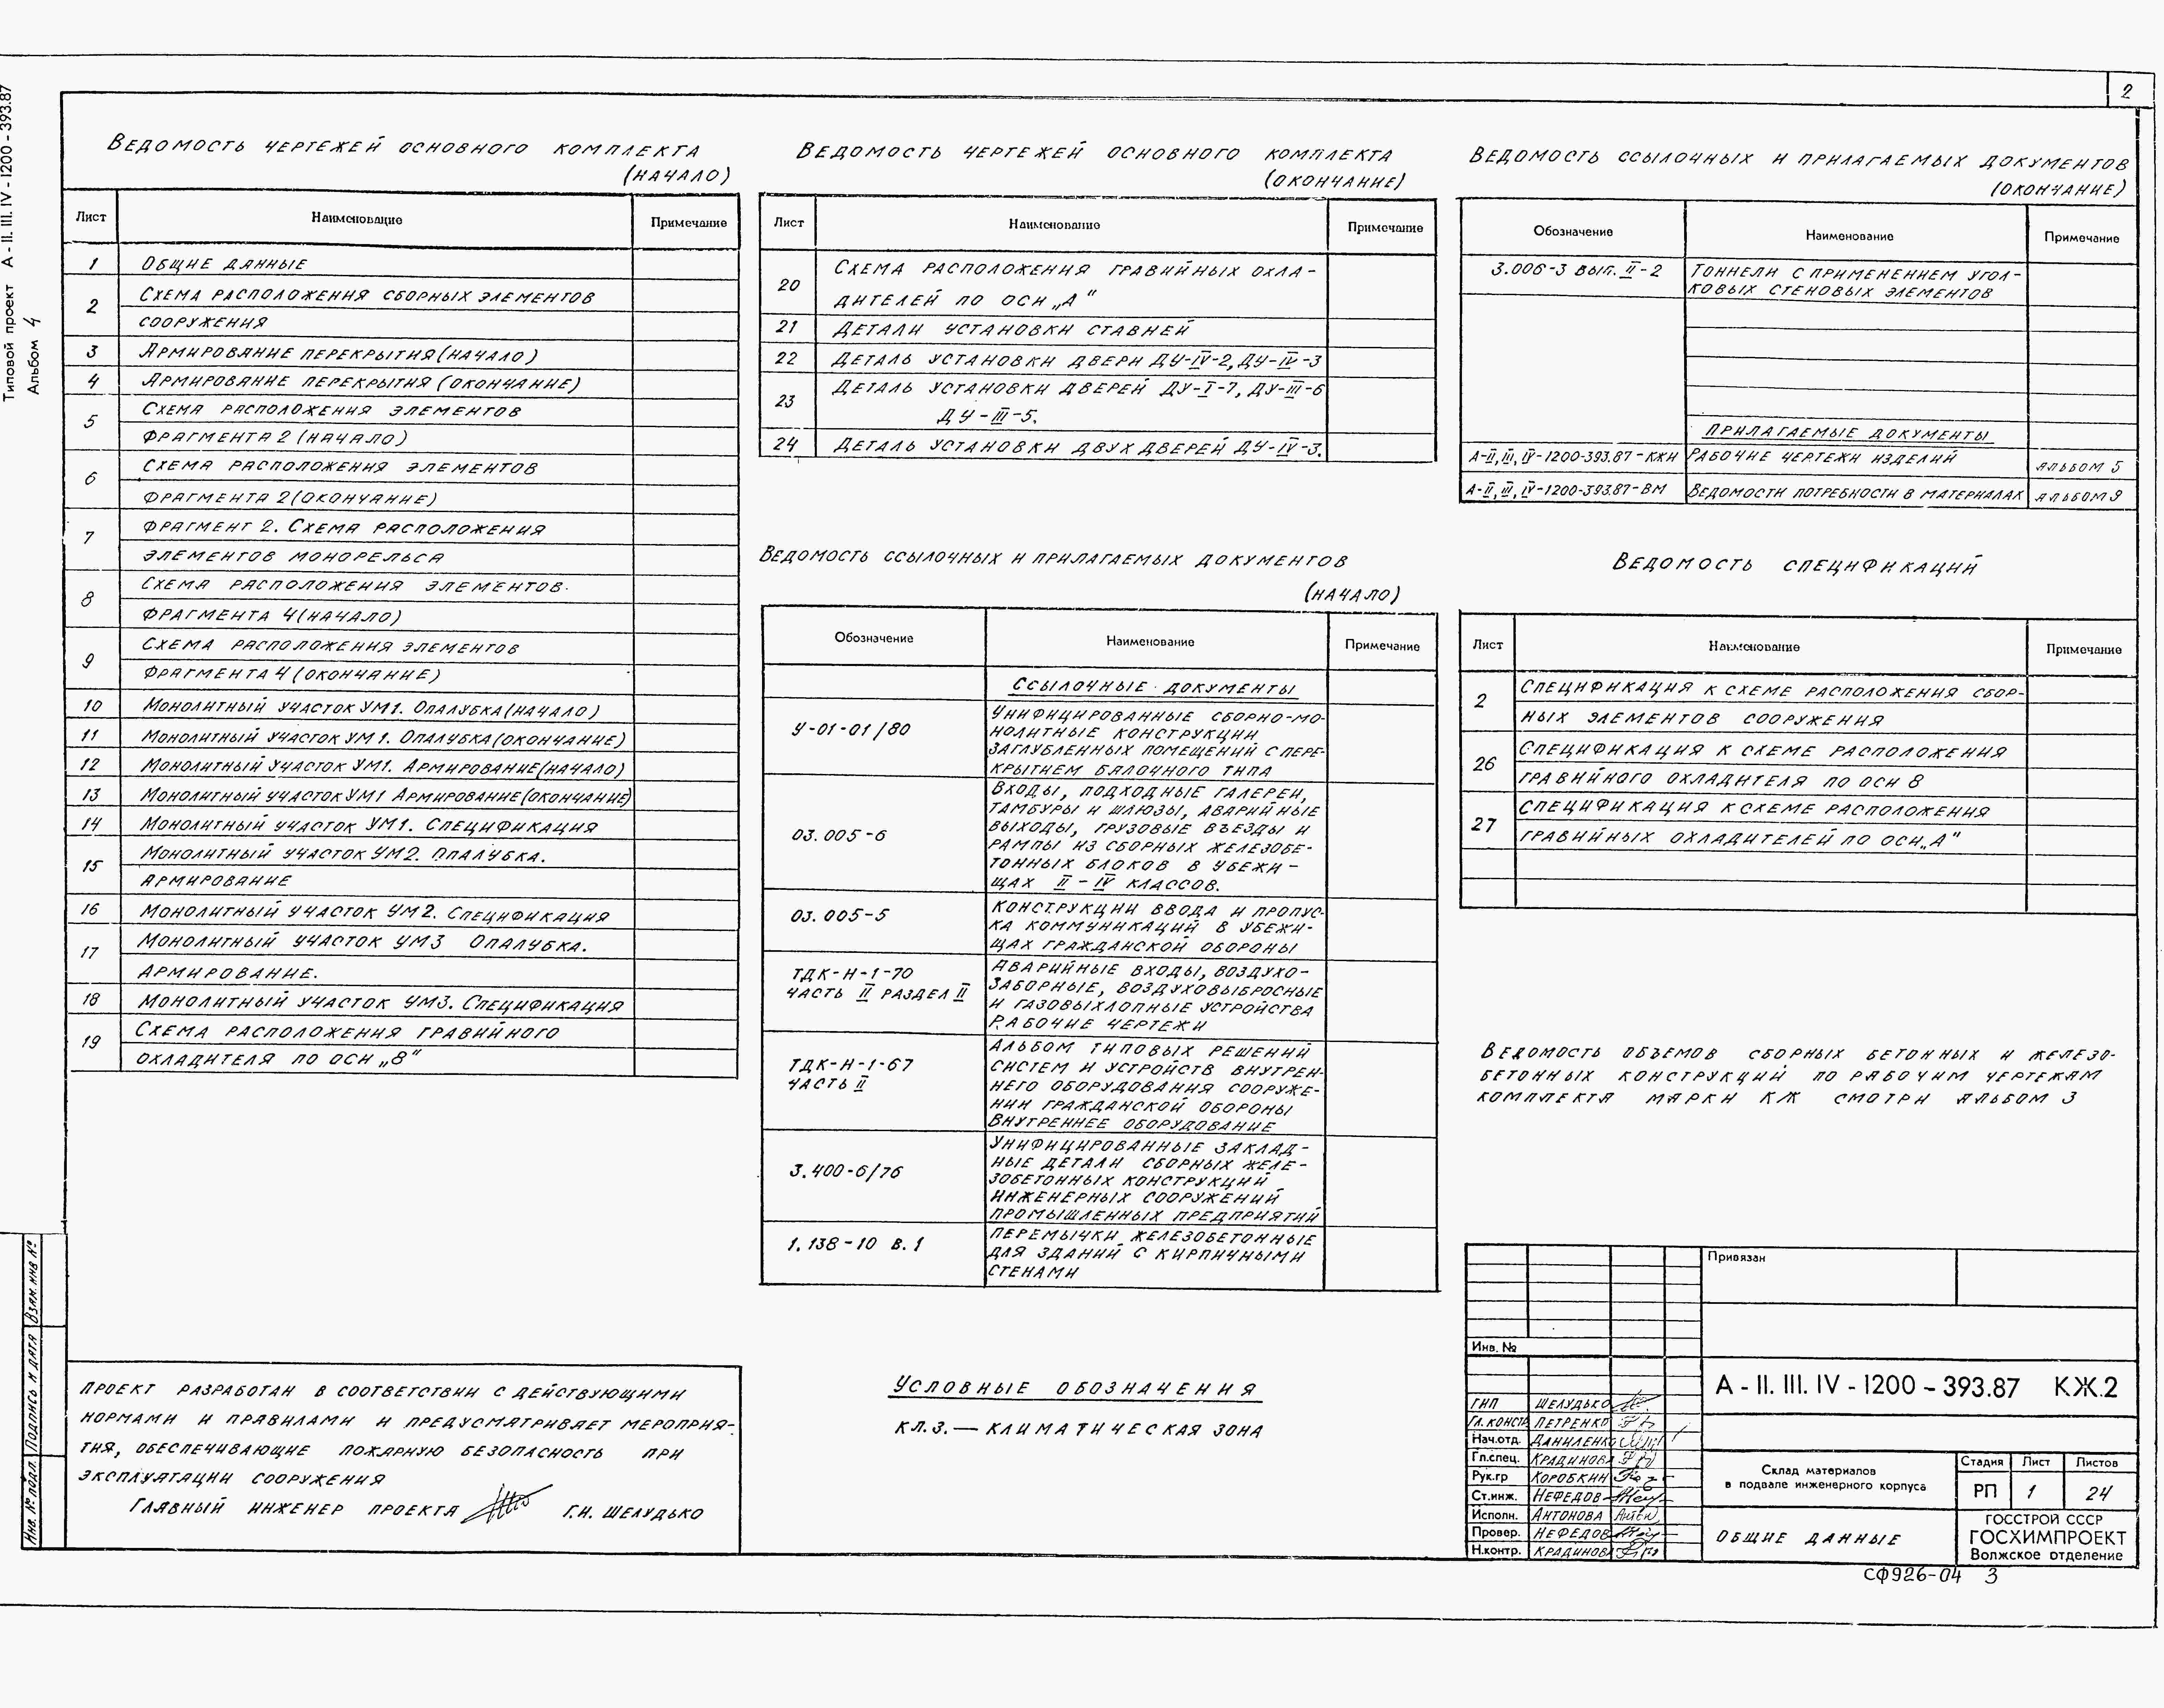 2
Типовой проект А-II. III. IV-1200-393.87
Альбом 4
Ведомость чертежей основного комплекта
(начало)
Лист Наименование Примечание
1 Общие данные
2 Схема расположения сборных элементов
сооружения
3 Армирование перекрытия (начало)
4 Армирование перекрытия (окончание)
5 Схема расположения элементов
фрагмента 2 (начало)
6 Схема расположения элементов
фрагмента 2 (окончание)
7 Фрагмент 2. Схема расположения
элементов монорельса
8 Схема расположения элементов.
фрагмента 4 (начало)
9 Схема расположения элементов
фрагмента 4 (окончание)
10 Монолитный участок УМ1. Опалубка (начало)
11 Монолитный участок УМ1. Опалубка (окончание)
12 Монолитный участок УМ1. Армирование (начало)
13 Монолитный участок УМ1 Армирование (окончание)
14 Монолитный участок УМ1. Спецификация
15 Монолитный участок УМ2. Опалубка.
армирование
16 Монолитный участок УМ2. Спецификация
17 Монолитный участок УМ3 Опалубка.
армирование.
18 Монолитный участок УМ3. Спецификация
19 Схема расположения гравийного
охладителя по оси „8"
Проект разработан в соответствии с действующими
нормами и правилами и предусматривает мероприя-
тия, обеспечивающие пожарную безопасность при
эксплуатации сооружения
Главный инженер проекта Г.И. Шелудько
Ведомость чертежей основного комплекта
(окончание)
Лист Наименование Примечание
20 Схема расположения гравийных охла-
дителей по оси „А"
21 Детали установки ставней
22 Деталь установки двери ДУ-IV-2, ДУ-IV-3
23 Деталь установки дверей ДУ-I-7, ДУ-III-6
ДУ-III-5.
24 Деталь установки двух дверей ДУ-IV-3.
Ведомость ссылочных и прилагаемых документов
(начало)
Обозначение Наименование Примечание
Ссылочные документы
У-01-01/80 Унифицированные сборно-мо-
нолитные конструкции
заглубленных помещений с пере-
крытием балочного типа
03.005-6 Входы, подходные галереи,
тамбуры и шлюзы, аварийные
выходы, грузовые въезды и
рампы из сборных железобе-
тонных блоков в убежи-
щах II-IV классов.
03.005-5 Конструкции ввода и пропус-
ка коммуникаций в убежи-
щах гражданской обороны
ТДК-Н-1-70 Аварийные входы, воздухо-
часть II раздел II заборные, воздуховыбросные
и газовыхлопные устройства
Рабочие чертежи
ТДК-Н-1-67 Альбом типовых решений
часть II систем и устройств внутрен-
него оборудования сооруже-
нии гражданской обороны
Внутреннее оборудование
3.400-6/76 Унифицированные заклад-
ные детали сборных желе-
зобетонных конструкций
инженерных сооружений
промышленных предприятий
1.138-10 в.1 Перемычки железобетонные
для зданий с кирпичными
стенами
Условные обозначения
кл.з. — климатическая зона
Ведомость ссылочных и прилагаемых документов
(окончание)
Обозначение Наименование Примечание
3.006-3 вып. II-2 Тоннели с применением угол-
ковых стеновых элементов
Прилагаемые документы
А-II, III, IV-1200-393.87-КЖИ Рабочие чертежи изделий альбом 5
А-II, III, IV-1200-393.87-ВМ Ведомости потребности в материалах альбом 9
Ведомость спецификаций
Лист Наименование Примечание
2 Спецификация к схеме расположения сбор-
ных элементов сооружения
26 Спецификация к схеме расположения
гравийного охладителя по оси 8
27 Спецификация к схеме расположения
гравийных охладителей по оси „А"
Ведомость объемов сборных бетонных и железо-
бетонных конструкций по рабочим чертежам
комплекта марки КЖ смотри альбом 3
Привязан
Инв. №
А-II. III. IV-1200-393.87 КЖ.2
ГИП Шелудько
Гл. конст. Петренко
Нач.отд. Даниленко
Гл.спец. Крадинова
Рук.гр Коробкин
Ст.инж. Нефедов
Исполн. Антонова
Провер. Нефедов
Н.контр. Крадинова
Склад материалов
в подвале инженерного корпуса
Стадия Лист Листов
РП 1 24
Общие данные
ГОССТРОЙ СССР
ГОСХИМПРОЕКТ
Волжское отделение
СФ926-04 3
Инв. № подл. Подпись и дата Взам. инв №